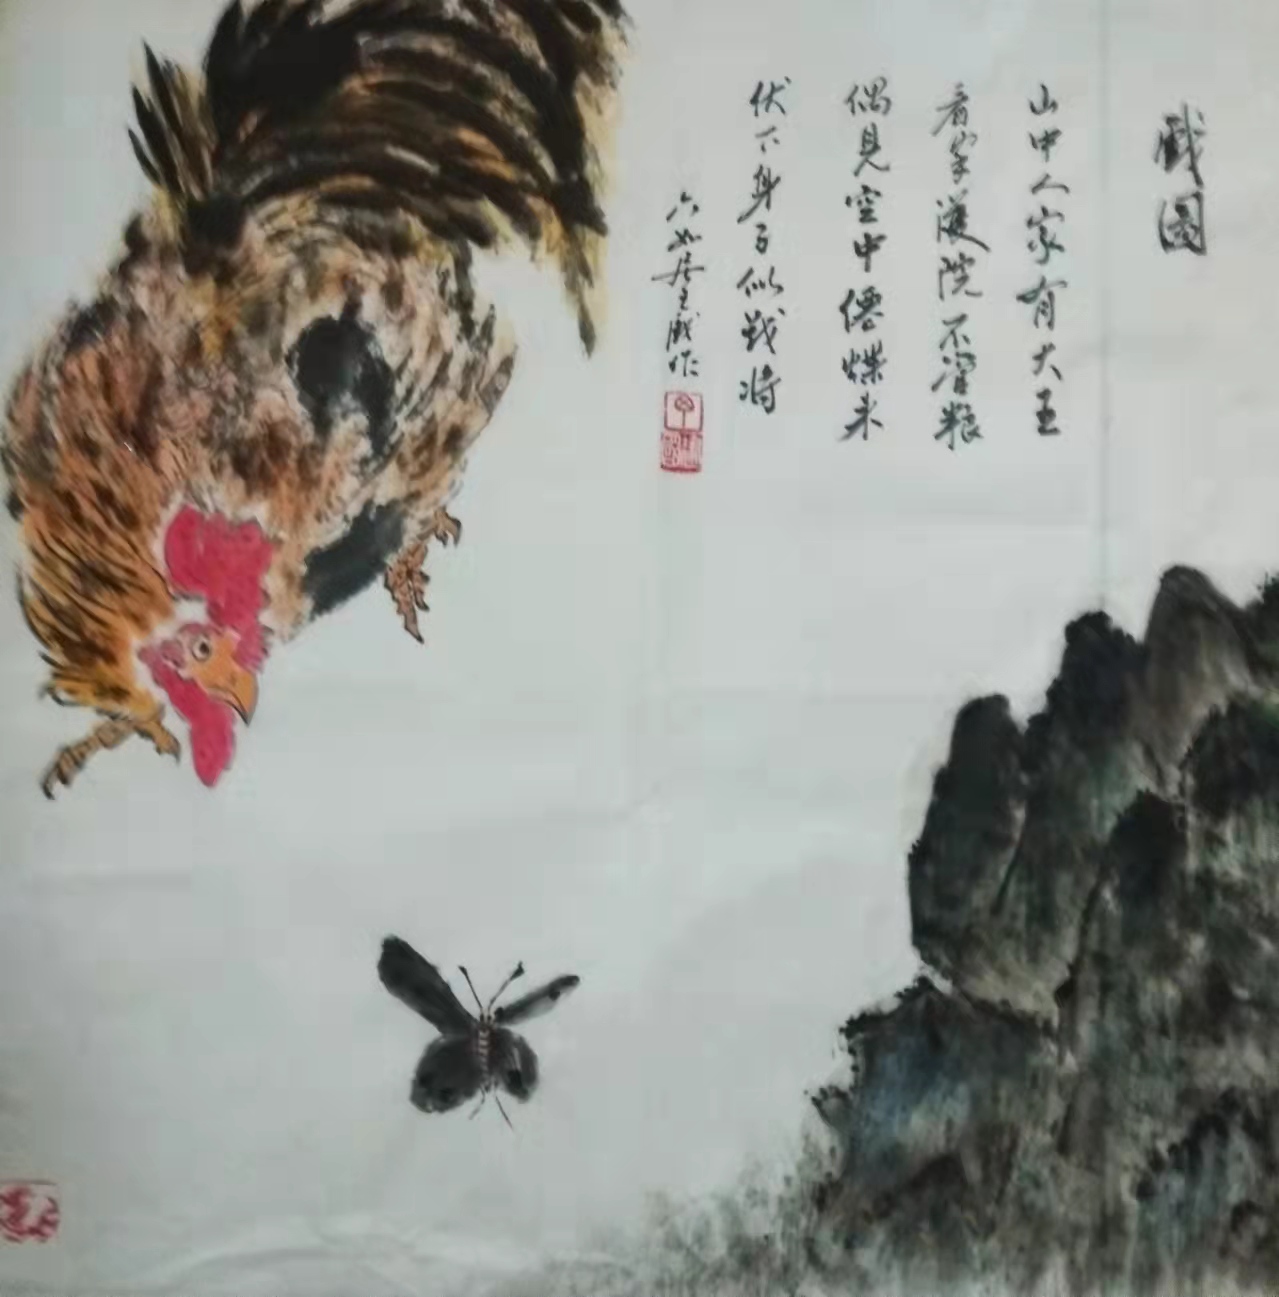 戲圖
山中人家有大王
看家護院不費粮
偶見空中僊蝶来
伏下身子似戰将
六如居主戲作